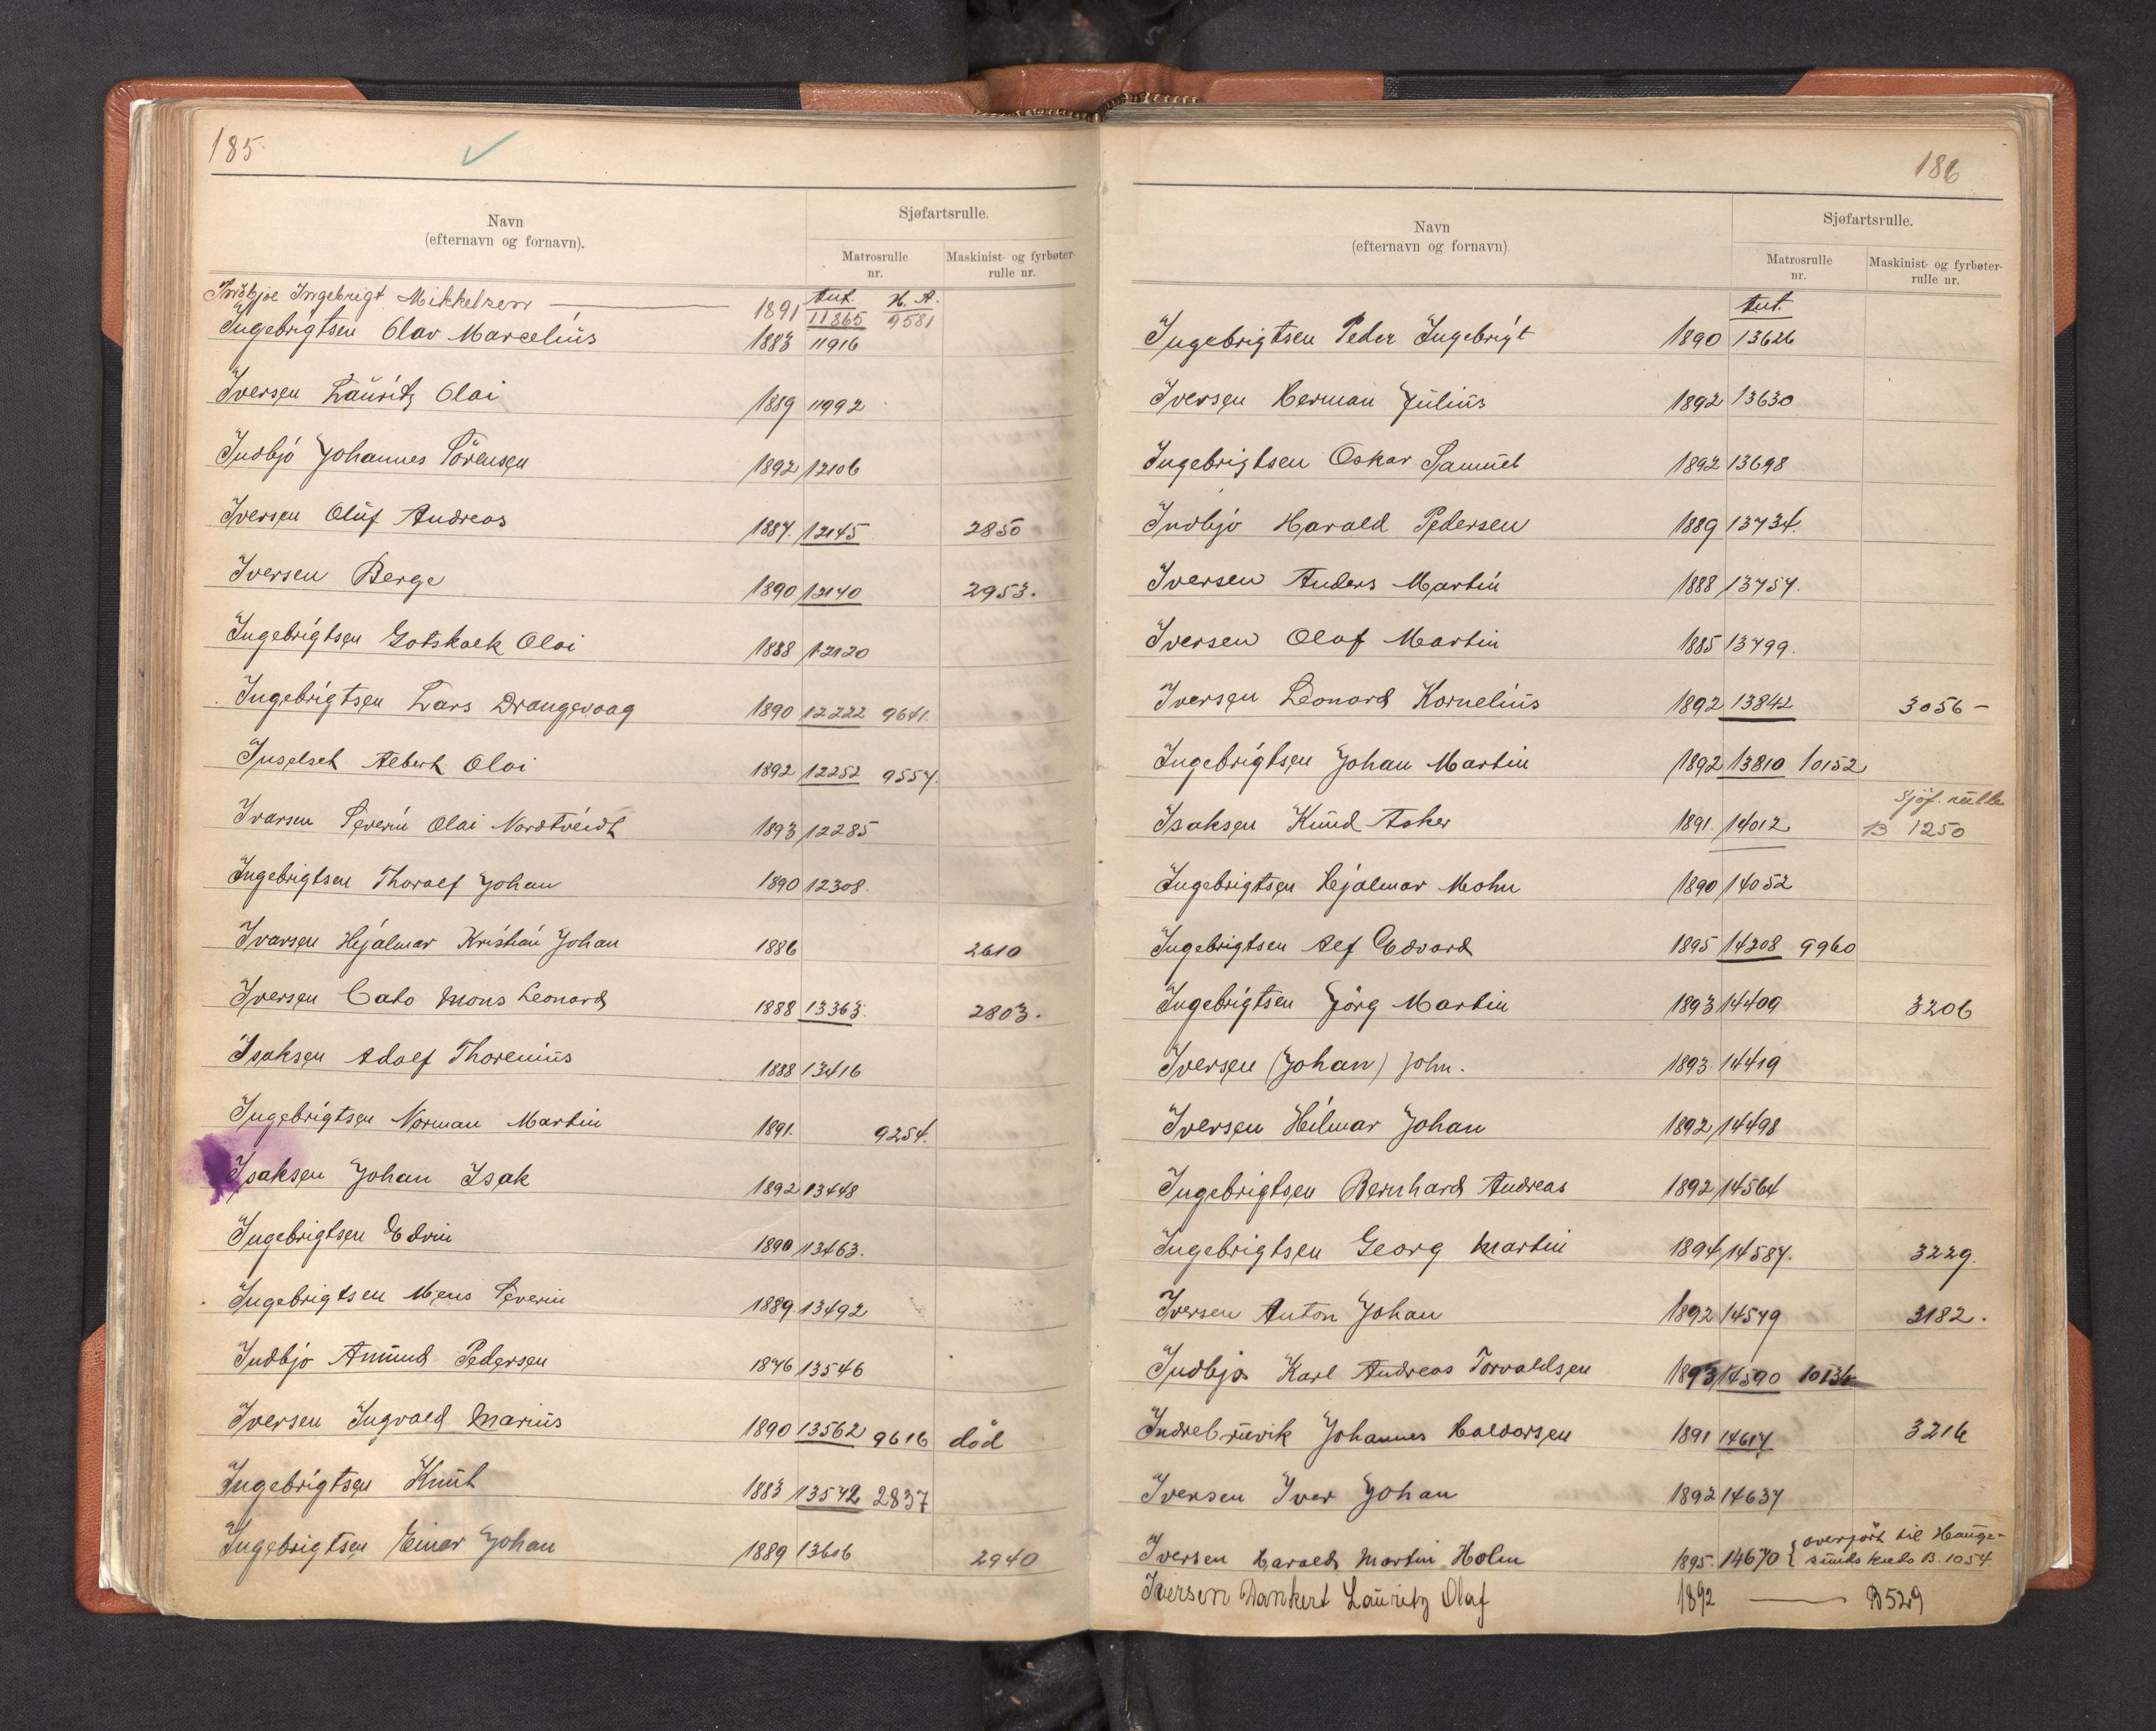 185
Navn
(efternavn og fornavn).
Sjøfartsrulle.
Matrosrulle
nr.
Maskinist- og fyrbøter-
rulle nr.
Indbjoe Ingebrigt Mikkelsen — 1891 Ant. 11865 H. A. 9581
Ingebrigtsen Olav Marcelius 1883 11916
Iversen Lauritz Olai 1889 11992
Indbjö Johannes Sörensen 1892 12106
Iversen Oluf Andreas 1887. 12145 2850
Iversen Berge 1890 12170 2953.
Ingebrigtsen Gotskalk Olai 1888 12120
Ingebrigtsen Lars Drangevaag 1890 12222 9641.
Inselset Albert Olai 1892 12252 9557.
Ivarsen Severin Olai Nordtveidt 1893 12285
Ingebrigtsen Thoralf Johan 1890 12308.
Ivarsen Hjalmar Kristian Johan 1886 2610
Iversen Cato Mons Leonard 1888 13363. 2803.
Isaksen Adolf Thorenius 1888 13416
Ingebrigtsen Norman Martin 1891. 9254.
Isaksen Johan Isak 1892 13448
Ingebrigtsen Edvin 1890 13463.
Ingebrigtsen Mens Severin 1889. 13492
Indbjo Amund Pedersen 1876 13546
Iversen Ingvald Marius 1890 13562 9616 död
Ingebrigtsen Knut 1883 13572 2837
Ingebrigtsen Einar Johan 1889 13606 2940
186
Navn
(efternavn og fornavn).
Sjøfartsrulle.
Matrosrulle
nr.
Maskinist- og fyrbøter-
rulle nr.
Ant.
Ingebrigtsen Peder Ingebrigt 1890 13626
Iversen Herman Julius 1892 13630
Ingebrigtsen Oskar Samuel 1892 13698
Indbjö Harald Pedersen 1889 13734.
Iversen Anders Martin 1888 13757.
Iversen Olaf Martin 1885 13799.
Iversen Leonard Kornelius 1892 13842 3056 –
Ingebrigtsen Johan Martin 1892 13810 10152
Sjöf. rulle
Isaksen Knud Asker 1891. 14012 B 1250
Ingebrigtsen Hjalmar Mohn 1890 14052
Ingebrigtsen Alf Edvard 1895 14208 9960
Ingebrigtsen Jörg Martin 1893 14409 3206
Iversen (Johan) John. 1893 14419
Iversen Hilmar Johan 1892 14498
Ingebrigtsen Bernhard Andreas 1892 14564
Ingebrigtsen Georg Martin 1894 14587. 3229.
Iversen Anton Johan 1892 14579 3182.
Indbjo Karl Andreas Torvaldsen 1893 14590
Indrebruvik Johannes Haldorsen 1891 14617 3216
Iversen Iver Johan 1892 14637
Iversen Harald Martin Holm 1895. 14670 { overfört til Hauge-
sunds kreds B. 1054.
Iversen Dankert Lauritz Olaf 1892 — B529